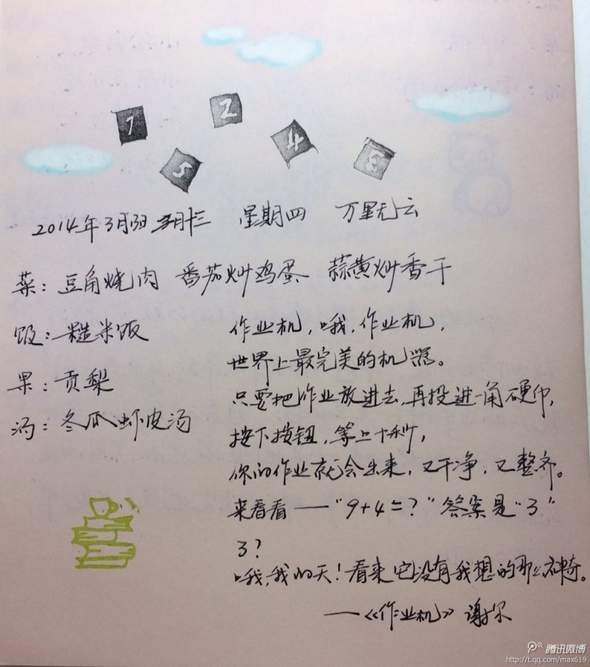 1 2
5 4 6
2014年3月13日 星期四 万里无云
菜: 豆角烧肉 番茄炒鸡蛋 蒜黄炒香干
饭: 糙米饭
果: 贡梨
汤: 冬瓜虾皮汤
作业机, 哦, 作业机,
世界上最完美的机器。
只要把作业放进去, 再投进一角硬币,
按下按钮, 等上十秒,
你的作业就会出来, 又干净, 又整齐。
来看看——“9+4=?” 答案是“3”
3?
哦, 我的天! 看来它没有我想的那么神奇。
——《作业机》 谢尔
腾讯微博
http://t.qq.com/max619